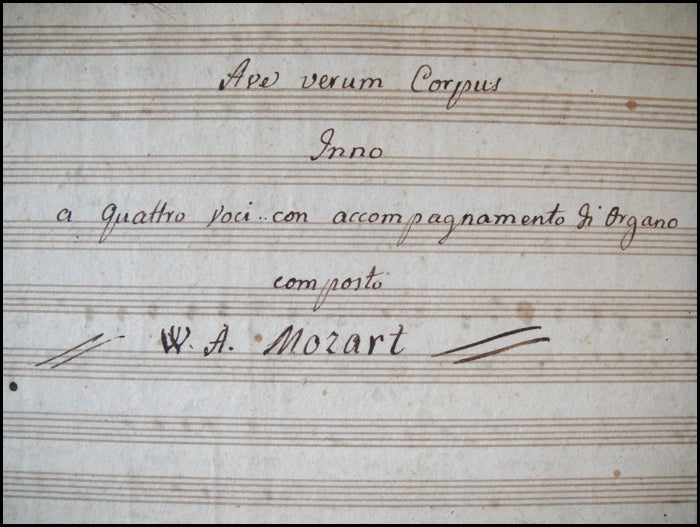 Ave verum Corpus
Inno
a quattro voci..con accompagnamento di Organo
composto
W. A. Mozart